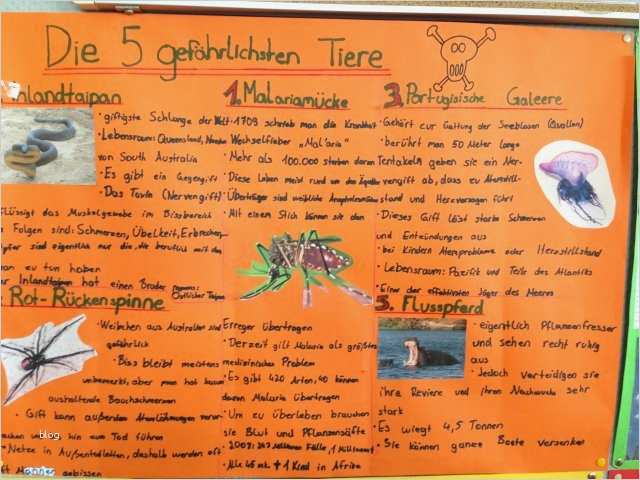 Die 5 gefährlichsten Tiere
Inlandtaipan
• giftigste Schlange der Welt
• Lebensraum: Queensland,
von South Australia
• Es gibt ein Gegengift
• Das Taxin (Nervengift)
flüssigt das Muskelgewebe im Bissbereich
Folgen sind: Schmerzen, Übelkeit, Erbrechen,
pfer sind eigentlich nur die, die beruflich mit den
zu tun haben
Inlandtaipan hat einen Bruder
Östlicher Taipan
Rot-Rückenspinne
• Weibchen aus Australien sind
gefährlich
• Biss bleibt meistens
unbemerkt, aber man hat kaum
aushaltende Bauchschmerzen
• Gift kann außerdem Atemlähmungen
hin zum Tod führen
• Netze in Außentoiletten, deshalb werden oft
Männer gebissen
1. Malariamücke
1709 schrieb man die Krankheit
Wechselfieber „Malaria"
• Mehr als 100.000 sterben daran
• Diese leben meist rund um den Äquator
• Überträger sind weibliche
• Mit einem Stich können sie den
Erreger übertragen
• Derzeit gilt Malaria als größtes
medizinisches Problem
• Es gibt 420 Arten, 40 können
davon Malaria übertragen
• Um zu überleben brauchen
sie Blut und Pflanzensäfte
Fälle, 1
• Alle 45 sek. † 1 Kind in Afrika
3. Portugisische Galeere
• Gehört zur Gattung der Seeblasen (Quallen)
• berührt man 50 Meter lange
Tentakeln geben sie ein Ner-
vengift ab, dass zu Atemstill-
stand und Herzversagen führt
• Dieses Gift löst starke Schmerzen
und Entzündungen aus
• bei Kindern Atemprobleme oder Herzstillstand
• Lebensraum: Pazifik und Teile des Atlantiks
• Einer der effektivsten Jäger des Meeres
5. Flusspferd
• eigentlich Pflanzenfresser
und sehen recht ruhig
aus
• Jedoch verteidigen sie
ihre Reviere und ihren Nachwuchs sehr
stark
• Es wiegt 4,5 Tonnen
• Sie können ganze Boote versenken
blog